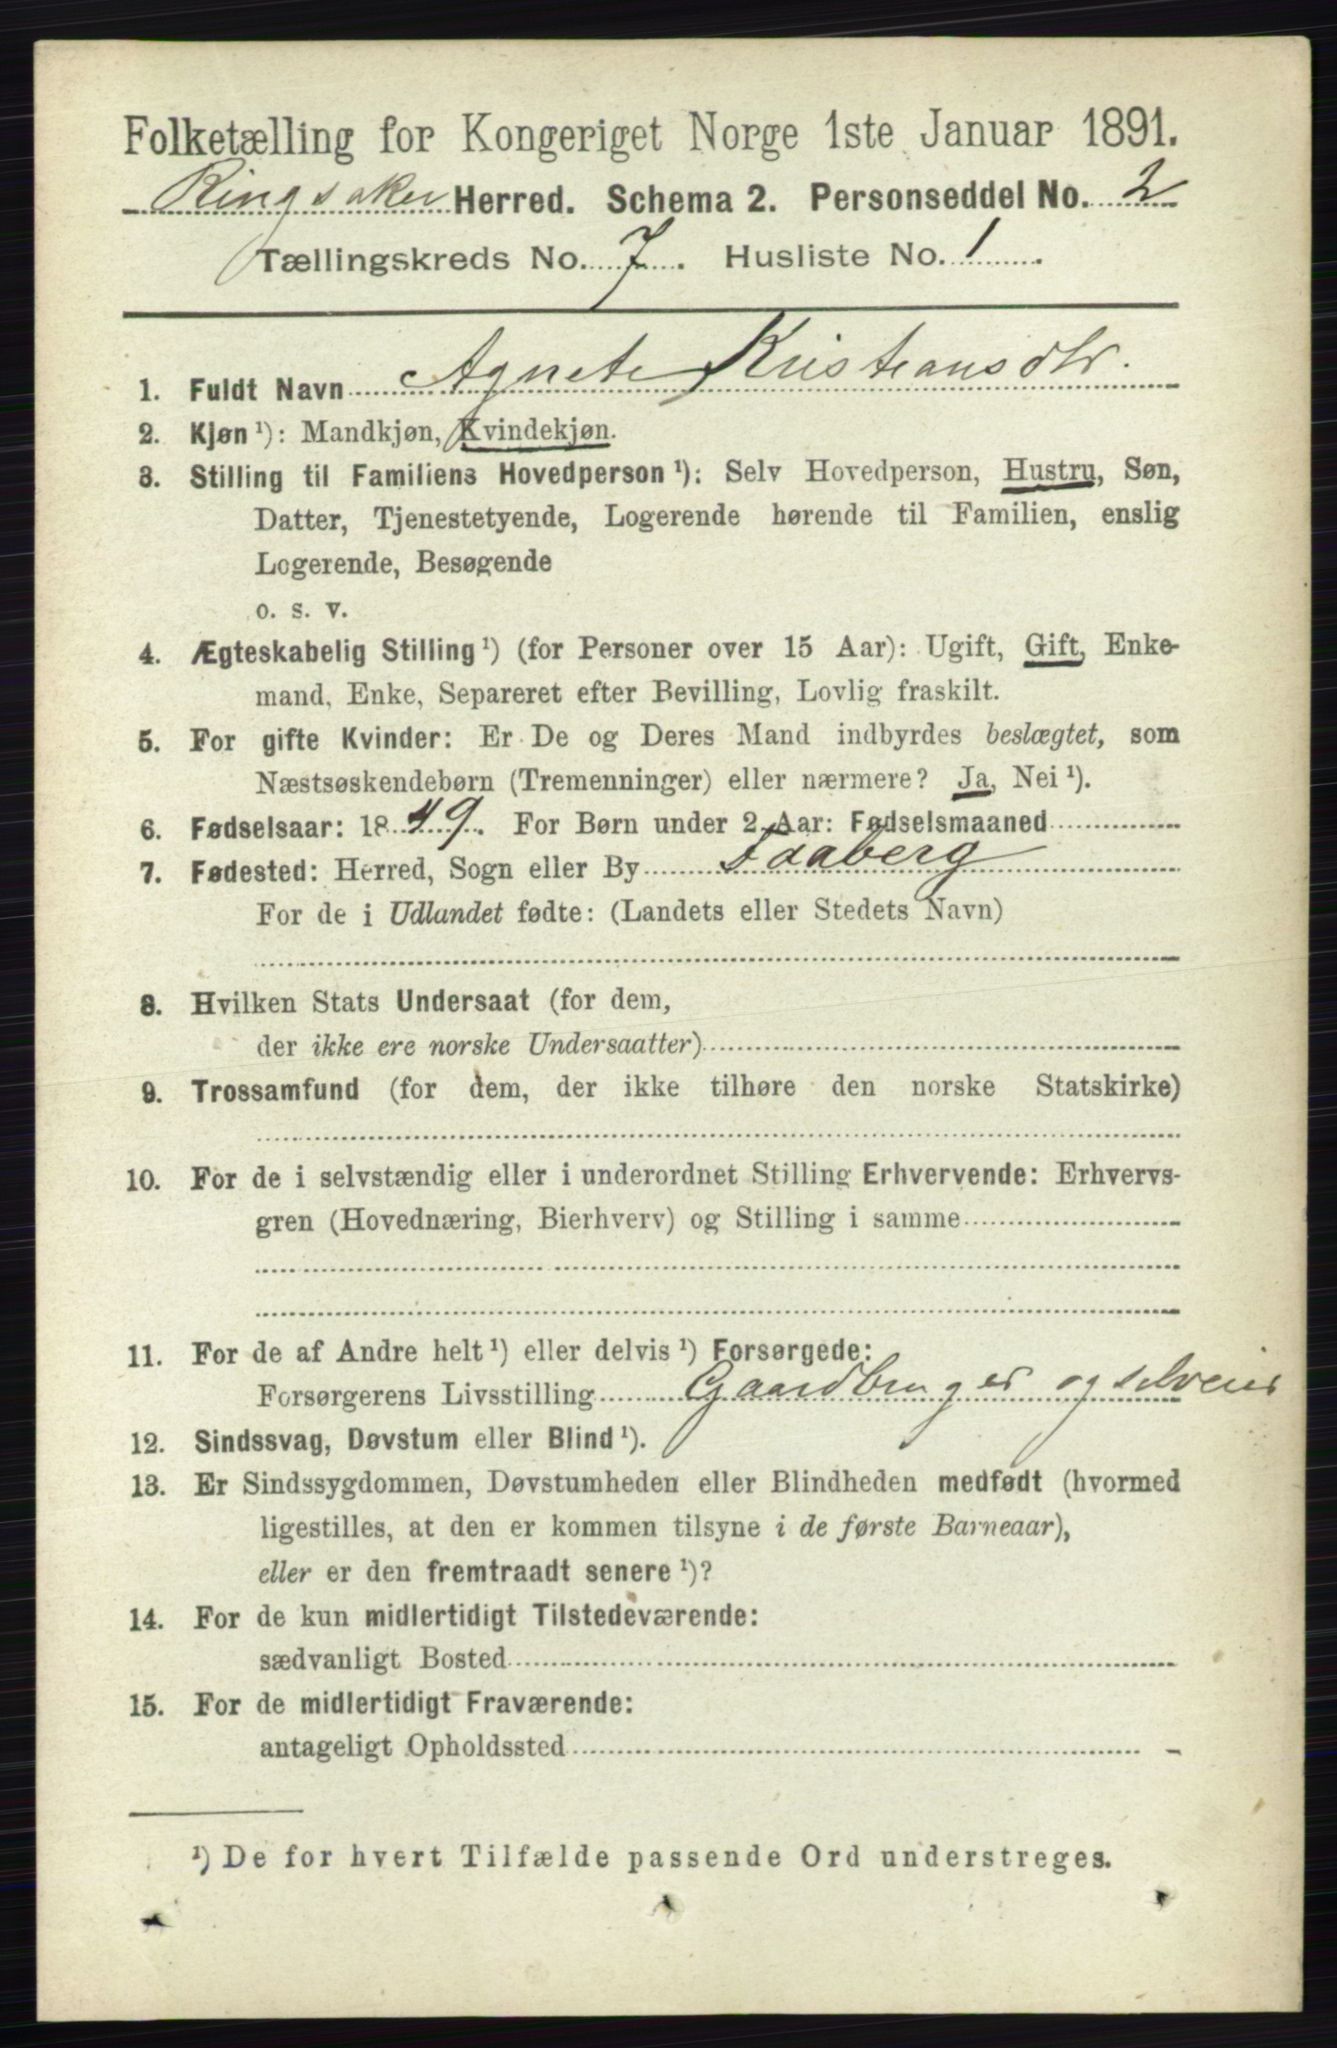 Folketælling for Kongeriget Norge 1ste Januar 1891.
Ringsaker Herred. Schema 2. Personseddel No. 2
Tællingskreds No. 7. Husliste No. 1.
1. Fuldt Navn Agnete Kristiansdtr.
2. Kjøn ¹): Mandkjøn, Kvindekjøn.
3. Stilling til Familiens Hovedperson ¹): Selv Hovedperson, Hustru, Søn,
Datter, Tjenestetyende, Logerende hørende til Familien, enslig
Logerende, Besøgende
o. s. v.
4. Ægteskabelig Stilling ¹) (for Personer over 15 Aar): Ugift, Gift, Enke-
mand, Enke, Separeret efter Bevilling, Lovlig fraskilt.
5. For gifte Kvinder: Er De og Deres Mand indbyrdes beslægtet, som
Næstsøskendebørn (Tremenninger) eller nærmere? Ja, Nei ¹).
6. Fødselsaar: 1849. For Børn under 2 Aar: Fødselsmaaned
7. Fødested: Herred, Sogn eller By Faaberg
For de i Udlandet fødte: (Landets eller Stedets Navn)
8. Hvilken Stats Undersaat (for dem,
der ikke ere norske Undersaatter)
9. Trossamfund (for dem, der ikke tilhøre den norske Statskirke)
10. For de i selvstændig eller i underordnet Stilling Erhvervende: Erhvervs-
gren (Hovednæring, Bierhverv) og Stilling i samme
11. For de af Andre helt ¹) eller delvis ¹) Forsørgede:
Forsørgerens Livsstilling Gaardbruger og selveier
12. Sindssvag, Døvstum eller Blind ¹).
13. Er Sindssygdommen, Døvstumheden eller Blindheden medfødt (hvormed
ligestilles, at den er kommen tilsyne i de første Barneaar),
eller er den fremtraadt senere ¹)?
14. For de kun midlertidigt Tilstedeværende:
sædvanligt Bosted
15. For de midlertidigt Fraværende:
antageligt Opholdssted
¹) De for hvert Tilfælde passende Ord understreges.